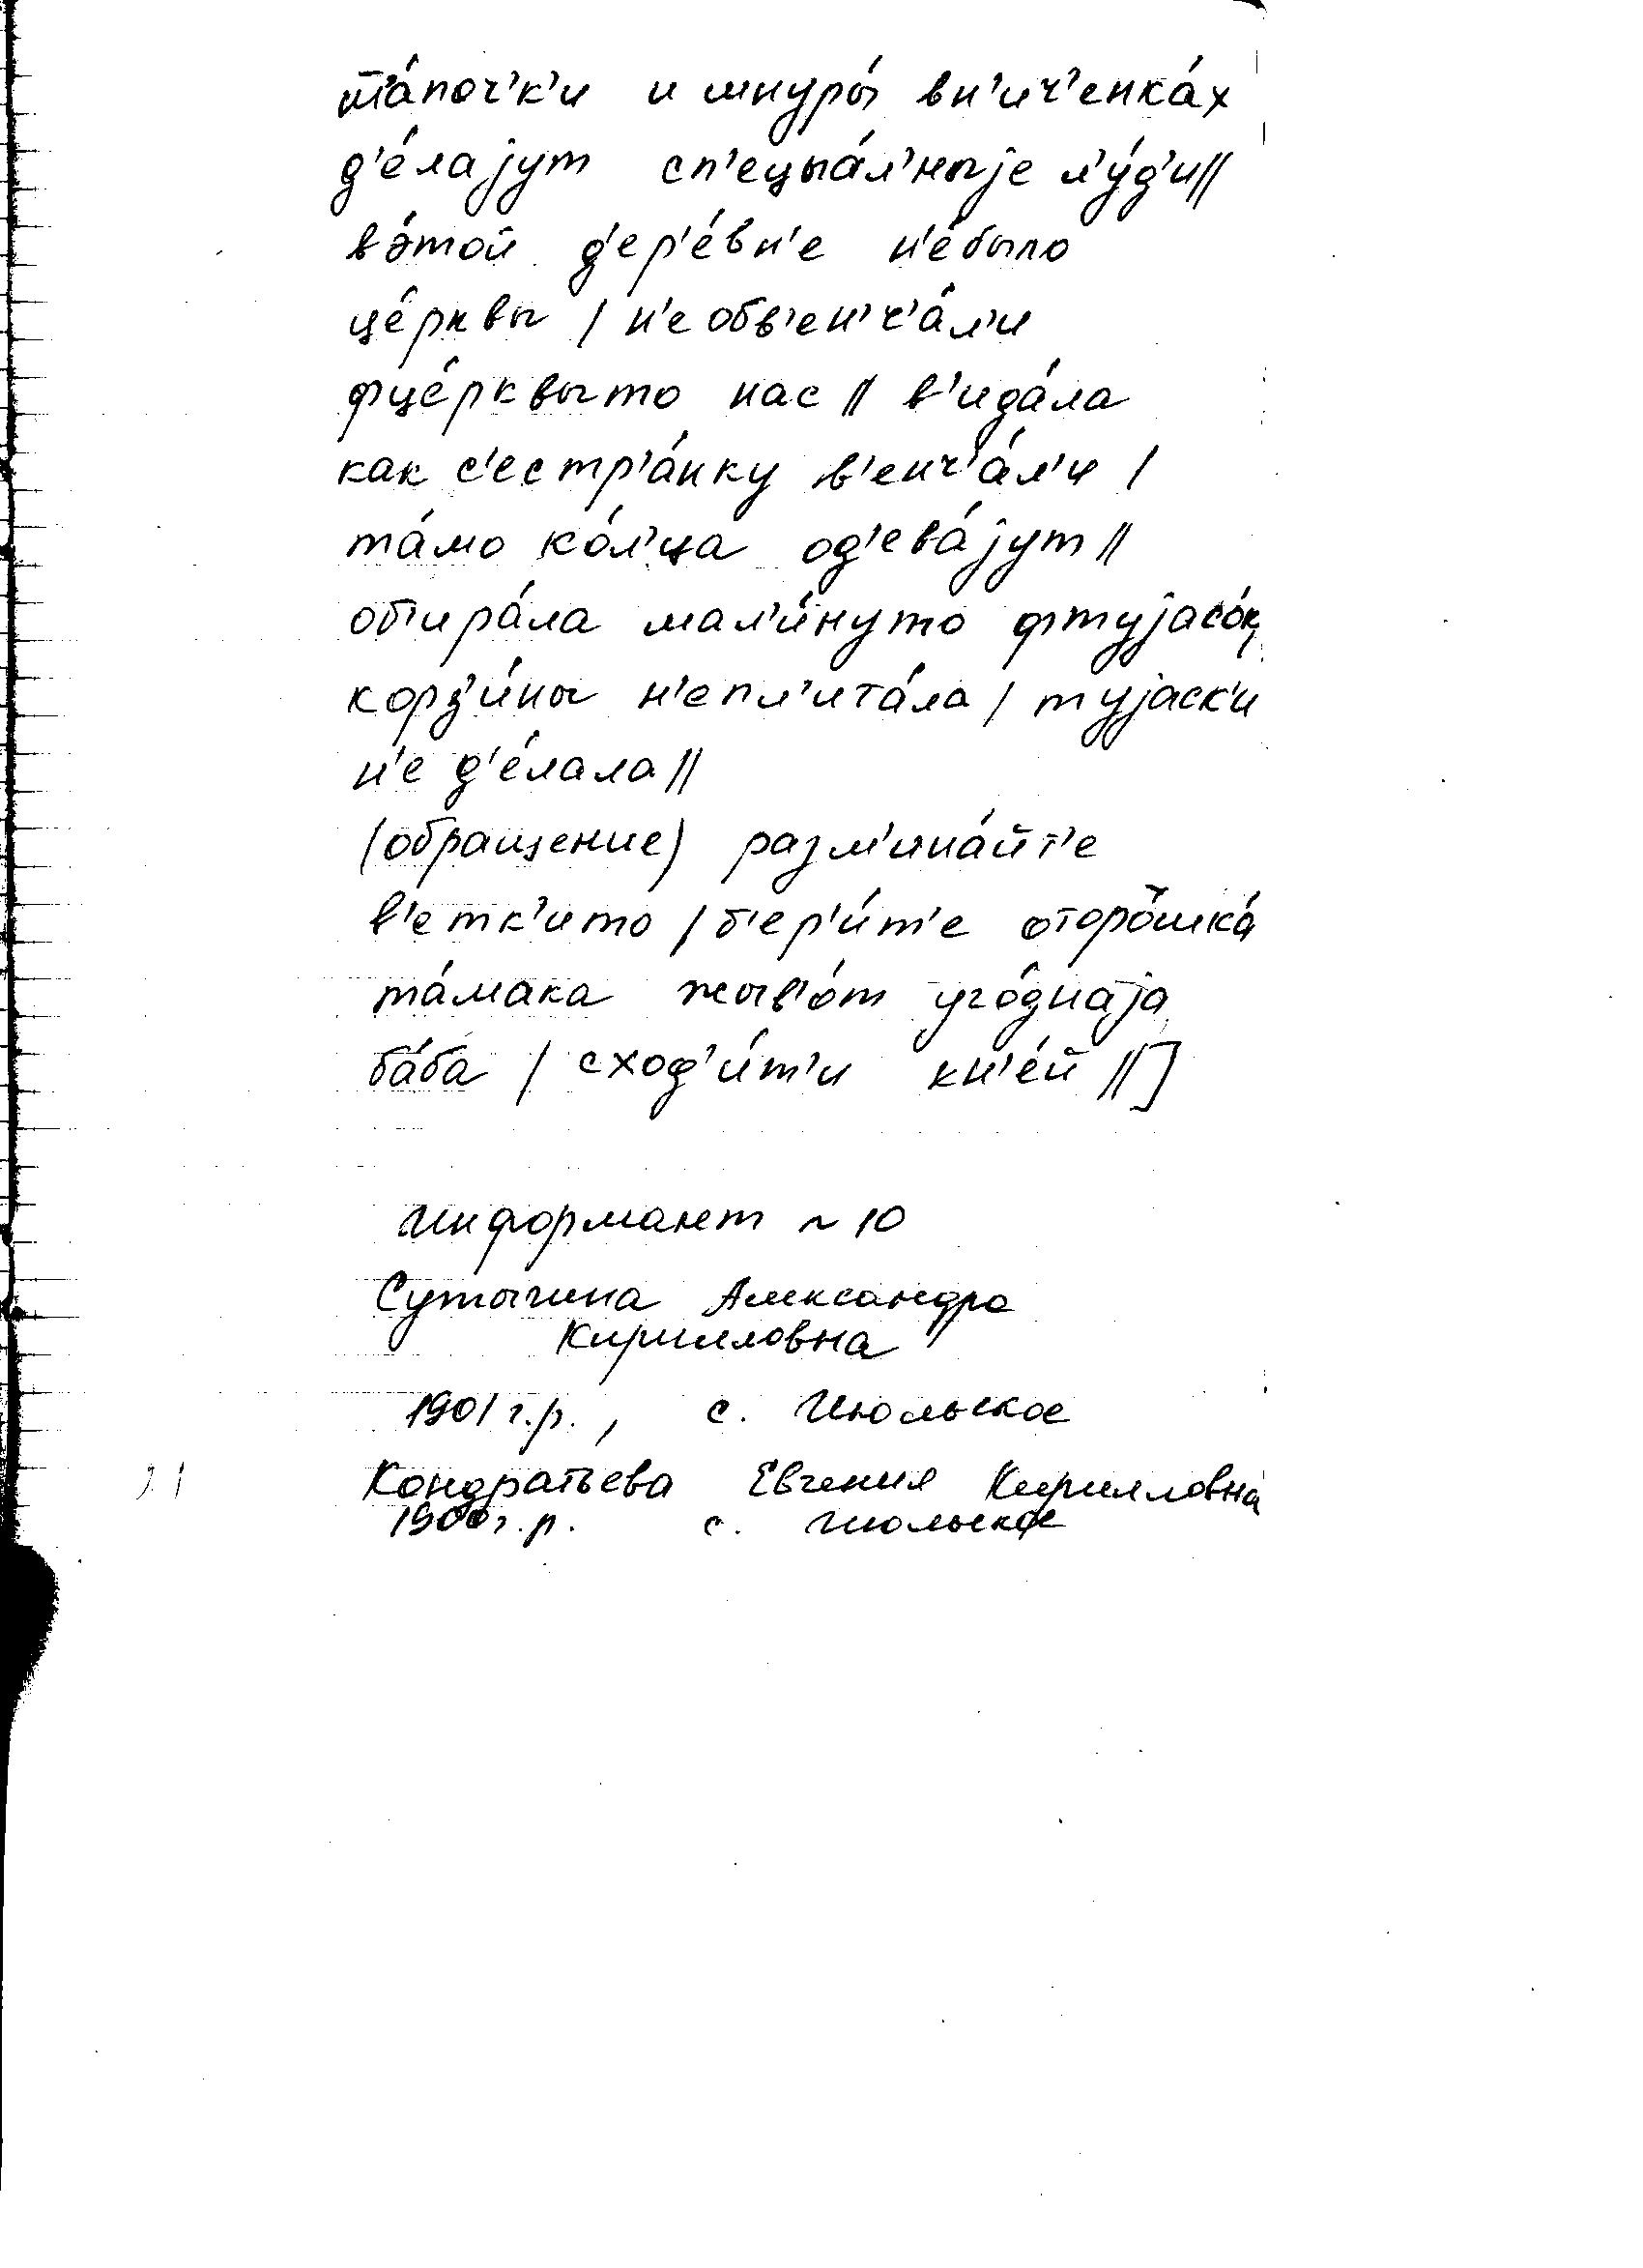 та́поч'к'и и шнуры́ вн'ич'енка́х
д'е́лаjут сп'ецыа́л'ныjе л'у́д'и//
вэ́той д'ер'е́вн'е н'е́было
це́рквы / н'е обв'ен'ч'а́л'и
фце́рквыто нас // в'ида́ла
как с'естр'а́нку в'енч'а́л'и /
та́мо ко́л'ца од'ева́jут //
об'ира́ла мал'и́нуто фтуjасо́к
корз'и́ны н'епл'ита́ла / туjаск'и
н'е д'е́лала //
(обращение) разм'ина́йт'е
в'етк'ито / б'ер'и́т'е
та́мака жыв'о́т уго́днаjа
ба́ба / сход'и́т'и кн'е́й //]
Информант ~ 10
Сутыгина Александра
Кирилловна
1901 г.р., с. Июльское
Кондратьева Евгения Кирилловна
1900 г.р. с. Июльское